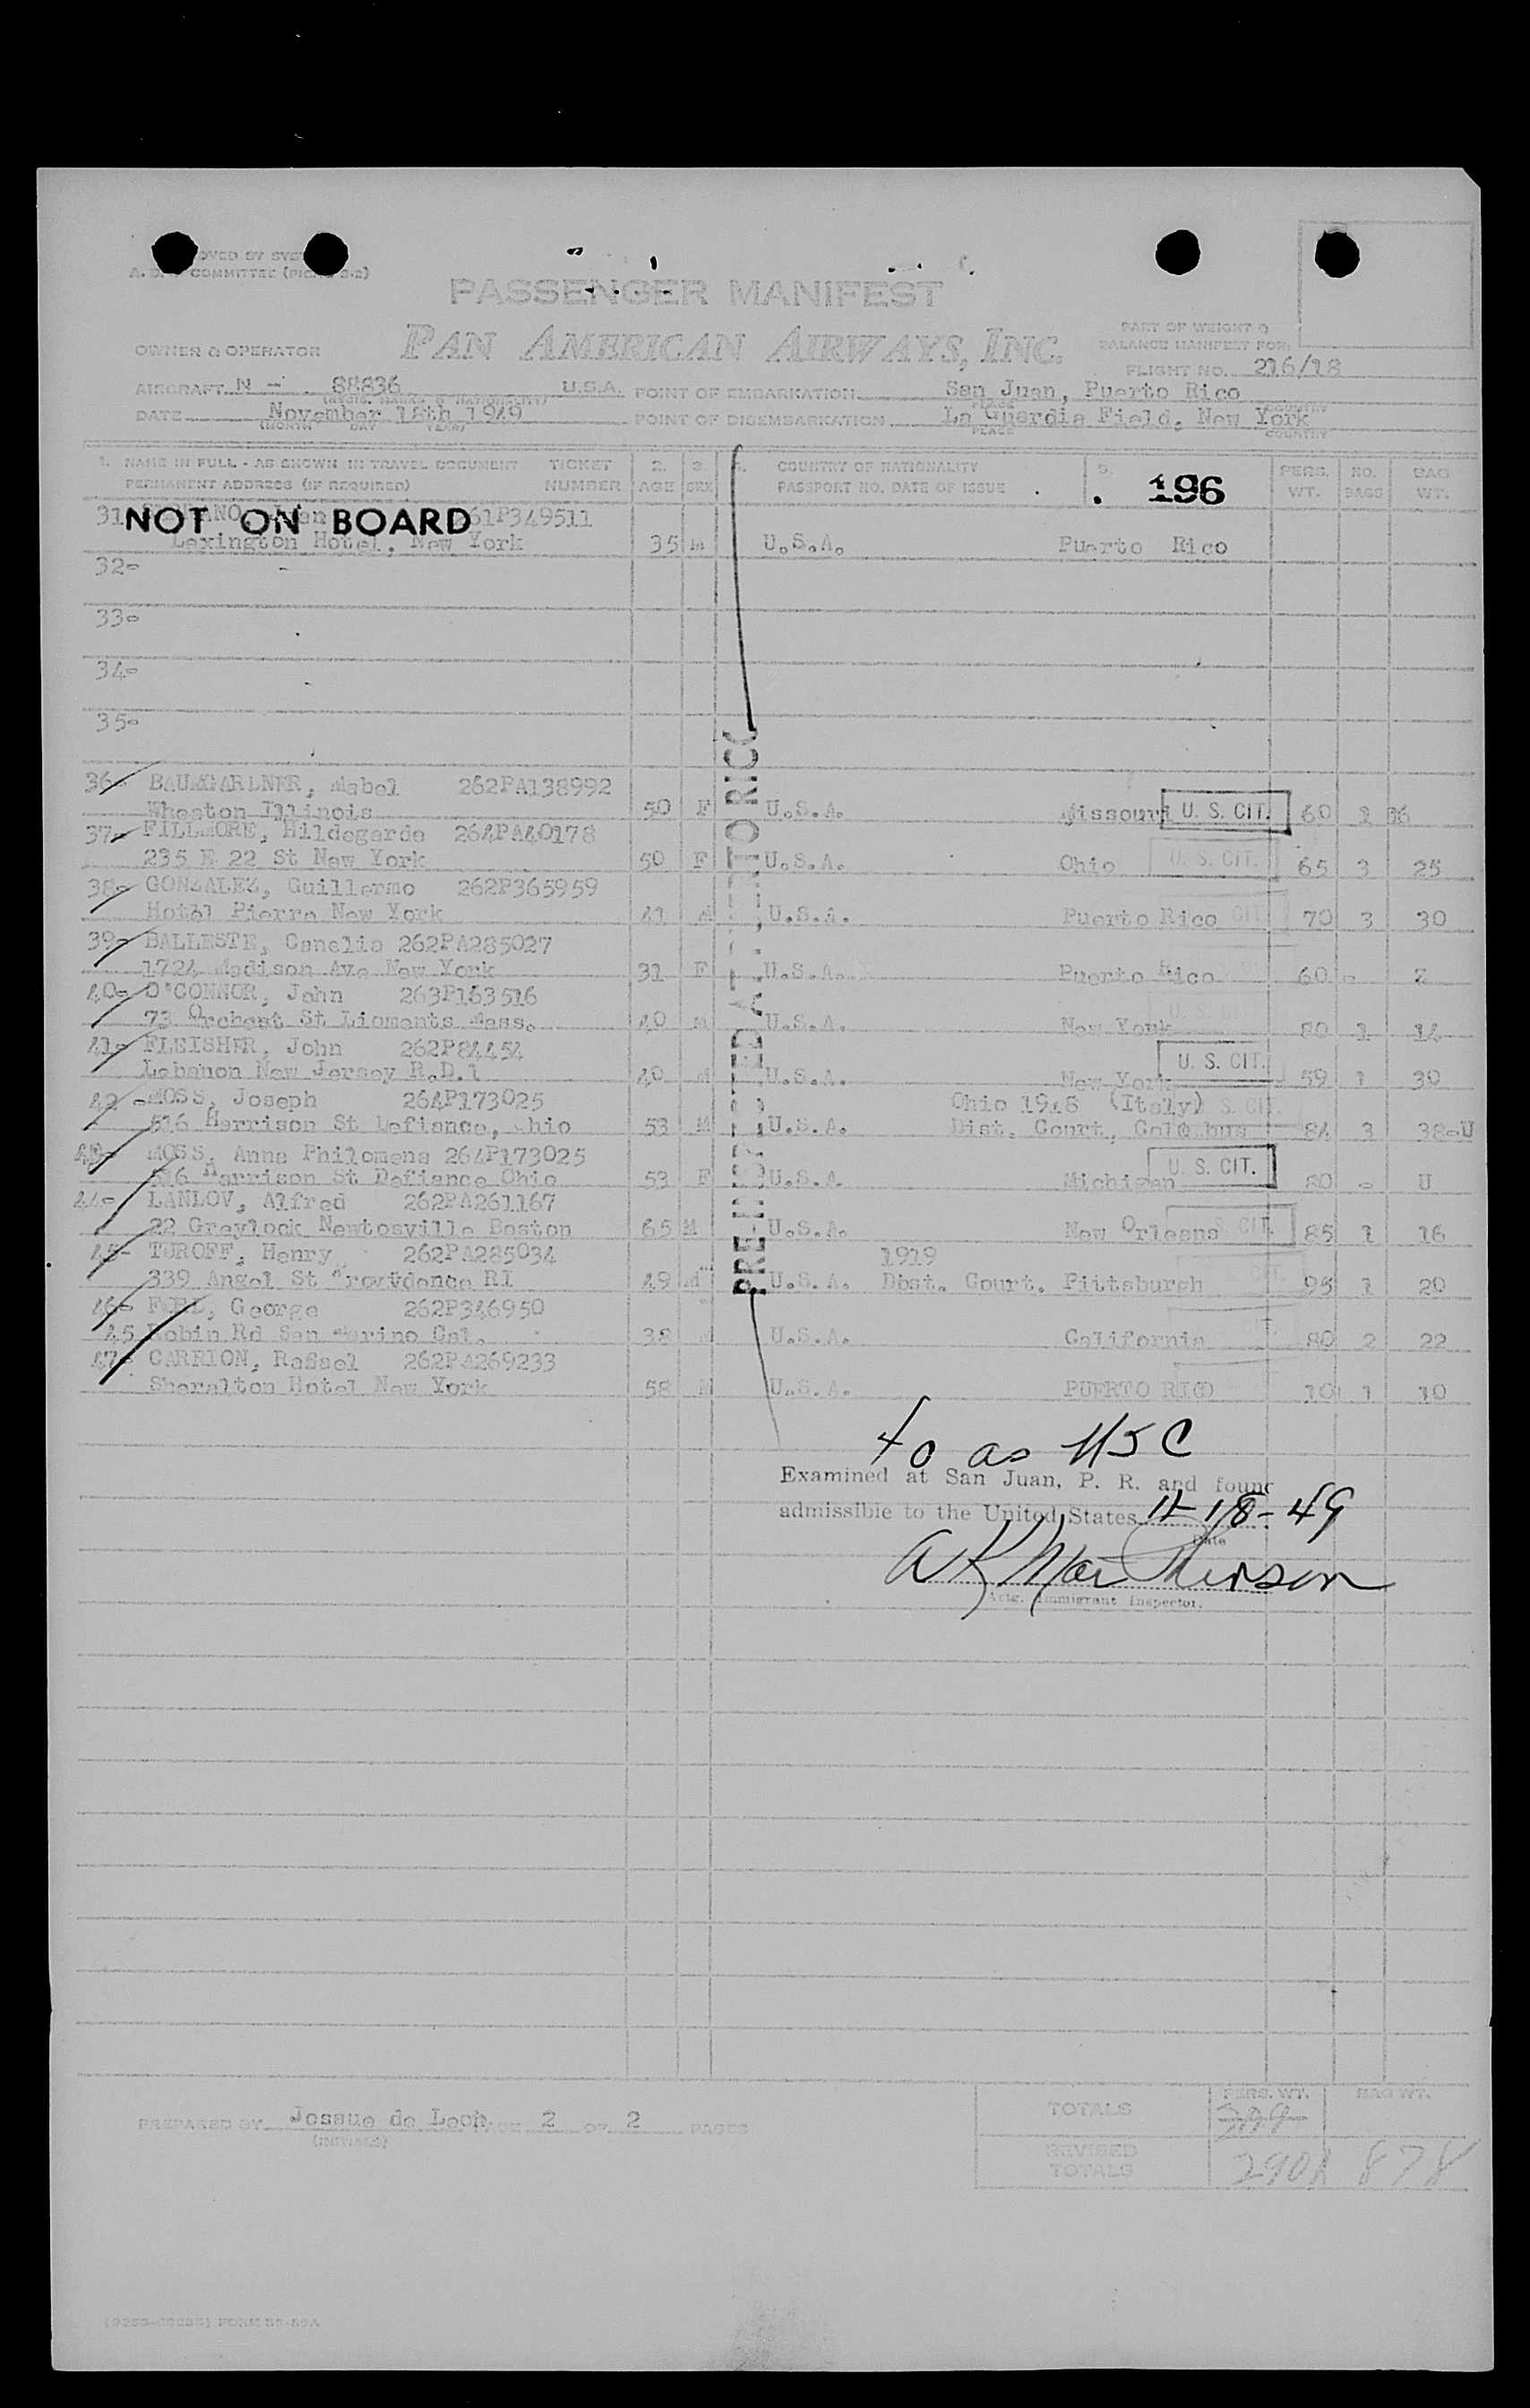 PASSENGER MANIFEST
PAN AMERICAN AIRWAYS, INC.
A. COMMITTEE
PART OF WEIGHT &
BALANCE MANIFEST FOR:
OWNER & OPERATOR
FLIGHT NO. 216/18
AIRCRAFT N - 88836 U.S.A. POINT OF EMBARKATION San Juan, Puerto Rico
DATE November 18th 1949 POINT OF DISEMBARKATION La Guardia Field, New York
(MONTH DAY YEAR) PLACE COUNTRY
1. NAME IN FULL - AS SHOWN IN TRAVEL DOCUMENT TICKET 2. 3. COUNTRY OF NATIONALITY 5. PERS. NO. BAG
PERMANENT ADDRESS (IF REQUIRED) NUMBER AGE SEX PASSPORT NO. DATE OF ISSUE 196 WT. BAGS WT.
31 NOT ON BOARD 61P349511
Lexington Hotel, New York 35 m U.S.A. Puerto Rico
32-
33-
34-
35-
36- BAUMGARLNER, Mabel 262PA138992
Wheaton Illinois 50 F U.S.A. Missouri U. S. CIT. 60 1
37- FILLMORE, Hildegarde 264PA40178
235 E 22 St New York 50 F U.S.A. Ohio U. S. CIT. 65 3 25
38- GONZALEZ, Guillermo 262P365959
Hotel Pierre New York 41 M U.S.A. Puerto Rico CIT. 70 3 30
39- BALLESTE, Canelia 262PA285027
1724 Madison Ave New York 31 F U.S.A. Puerto Rico 60 -
40- O'CONNOR, John 263P163516
73 Orchest St Liomonts Mass. 40 M U.S.A. New York U. S. CIT. 80 1 14
41- FLEISHER, John 262P84454
Lebanon New Jersey R.D.1 40 M U.S.A. New York U. S. CIT. 59 1 30
42 - MOSS, Joseph 264P173025 Ohio 1918 (Italy) S. CIT.
516 Harrison St Defiance, Ohio 53 M U.S.A. Dist. Court, Columbus 84 3 38-U
43- MOSS, Anna Philomena 264P173025
516 Harrison St Defiance Ohio 53 F U.S.A. Michigan U. S. CIT. 80 - U
44- LANLOV, Alfred 262PA261167
22 Greylock Newtosville Boston 65 M U.S.A. New Orleans S. CIT. 85 1 16
45- TUROFF, Henry 262PA285034 1919
339 Angel St Providence RI 49 M U.S.A. Dbst. Court. Pittsburgh CIT. 95 1 20
46- George 262P346950
45 Robin Rd San Marino Cal. 38 U.S.A. California 80 2 22
47- CARRION, Rafael 262PA269233
Sheralton Hotel New York 58 U.S.A. PUERTO RICO 1 10
PRE-INSPECTED AT PUERTO RICO
to as USC
Examined at San Juan, P. R. and found
admissible to the United States 11-18-49
Date
Actg. Immigrant Inspector.
PREPARED BY Jossue de Leon PAGE 2 OF 2 PAGES
(INITIALS)
PERS. WT. BAG WT.
TOTALS
REVISED
TOTALS 878